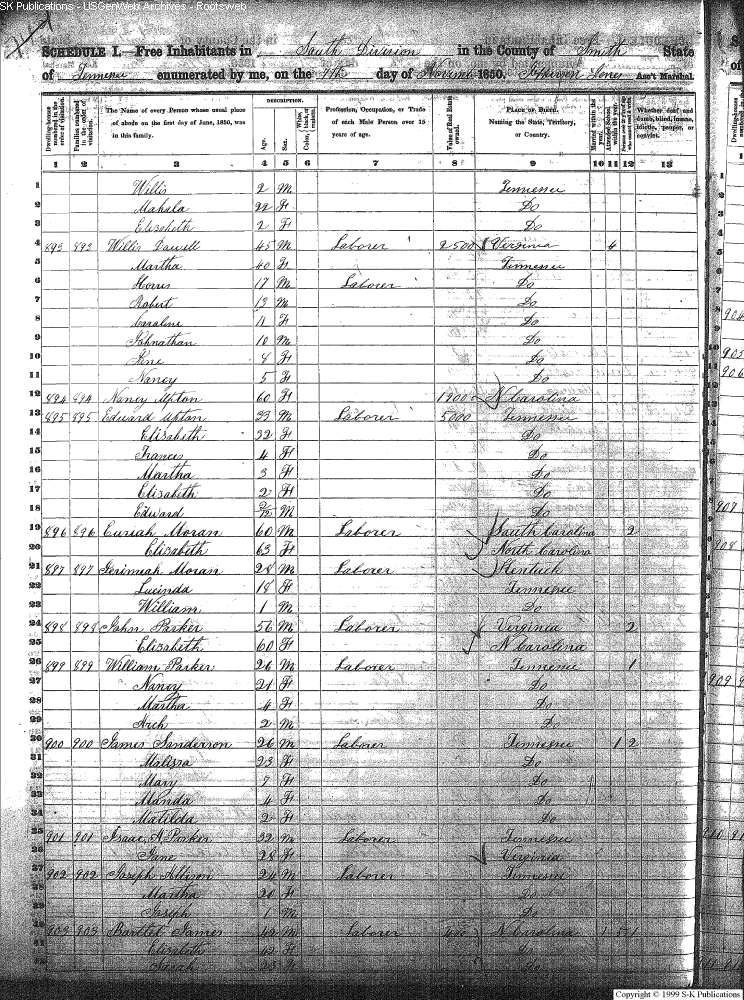 SK Publications - USGenWeb Archives - Rootsweb
SCHEDULE I.—Free Inhabitants in South Division in the County of Smith State
of Tennessee enumerated by me, on the 9th day of Novemb 1850. Jones Ass't Marshal.
Dwelling-houses numbered in the order of visitation.
Families numbered in the order of visitation.
The Name of every Person whose usual place of abode on the first day of June, 1850, was in this family.
DESCRIPTION.
Age.
Sex.
Color
Profession, Occupation, or Trade of each Male Person over 15 years of age.
Value of Real Estate owned.
PLACE OF BIRTH. Naming the State, Territory, or Country.
Married within the year.
Whether deaf and dumb, blind, insane, idiotic, pauper, or convict.
1 2 3 4 5 6 7 8 9 10 11 12 13
1 Willis 2 M Tennessee
2 Mahala 22 F Do
3 Elizabeth 2 F Do
4 893 893 Willis 45 M Laborer 2500 Virginia 4
5 Martha 40 F Tennessee
6 17 M Laborer Do
7 Robert 13 M Do
8 Caroline 11 F Do
9 Johnathan 10 M Do
10 Jane 8 F Do
11 Nancy 5 F Do
12 894 894 Nancy Upton 60 F 1900 N Carolina
13 895 895 Edward Upton 33 M Laborer 5000 Tennessee
14 Elizabeth 32 F Do
15 Frances 4 F Do
16 Martha 3 F Do
17 Elizabeth 2 F Do
18 Edward M Do
19 896 896 Curiah Moran 60 M Laborer South Carolina 2
20 Elizabeth 63 F North Carolina
21 897 897 Jerimiah Moran 28 M Laborer Kentuck
22 Lucinda 18 F Tennessee
23 William 1 M Do
24 898 898 John Parker 56 M Laborer Virginia 2
25 Elizabeth 60 F N Carolina
26 899 899 William Parker 26 M Laborer Tennessee 1
27 Nancy 21 F Do
28 Martha 4 F Do
29 Arch 2 M Do
30 900 900 James Sanderson 26 M Laborer Tennessee 1 2
31 Malissa 23 F Do
32 Mary 7 F Do
33 Manda 4 F Do
34 Matilda 2 F Do
35 901 901 Isaac A Parker 32 M Laborer Tennessee
36 Jane 28 F Virginia
37 902 902 Joseph Allison 24 M Laborer Tennessee
38 Martha 20 F Do
39 Joseph 1 M Do
40 903 903 Bartlet James 42 M Laborer 400 N Carolina
41 Elizabeth 42 F Do
42 Sarah 23 F Do
Copyright © 1999 S-K Publications